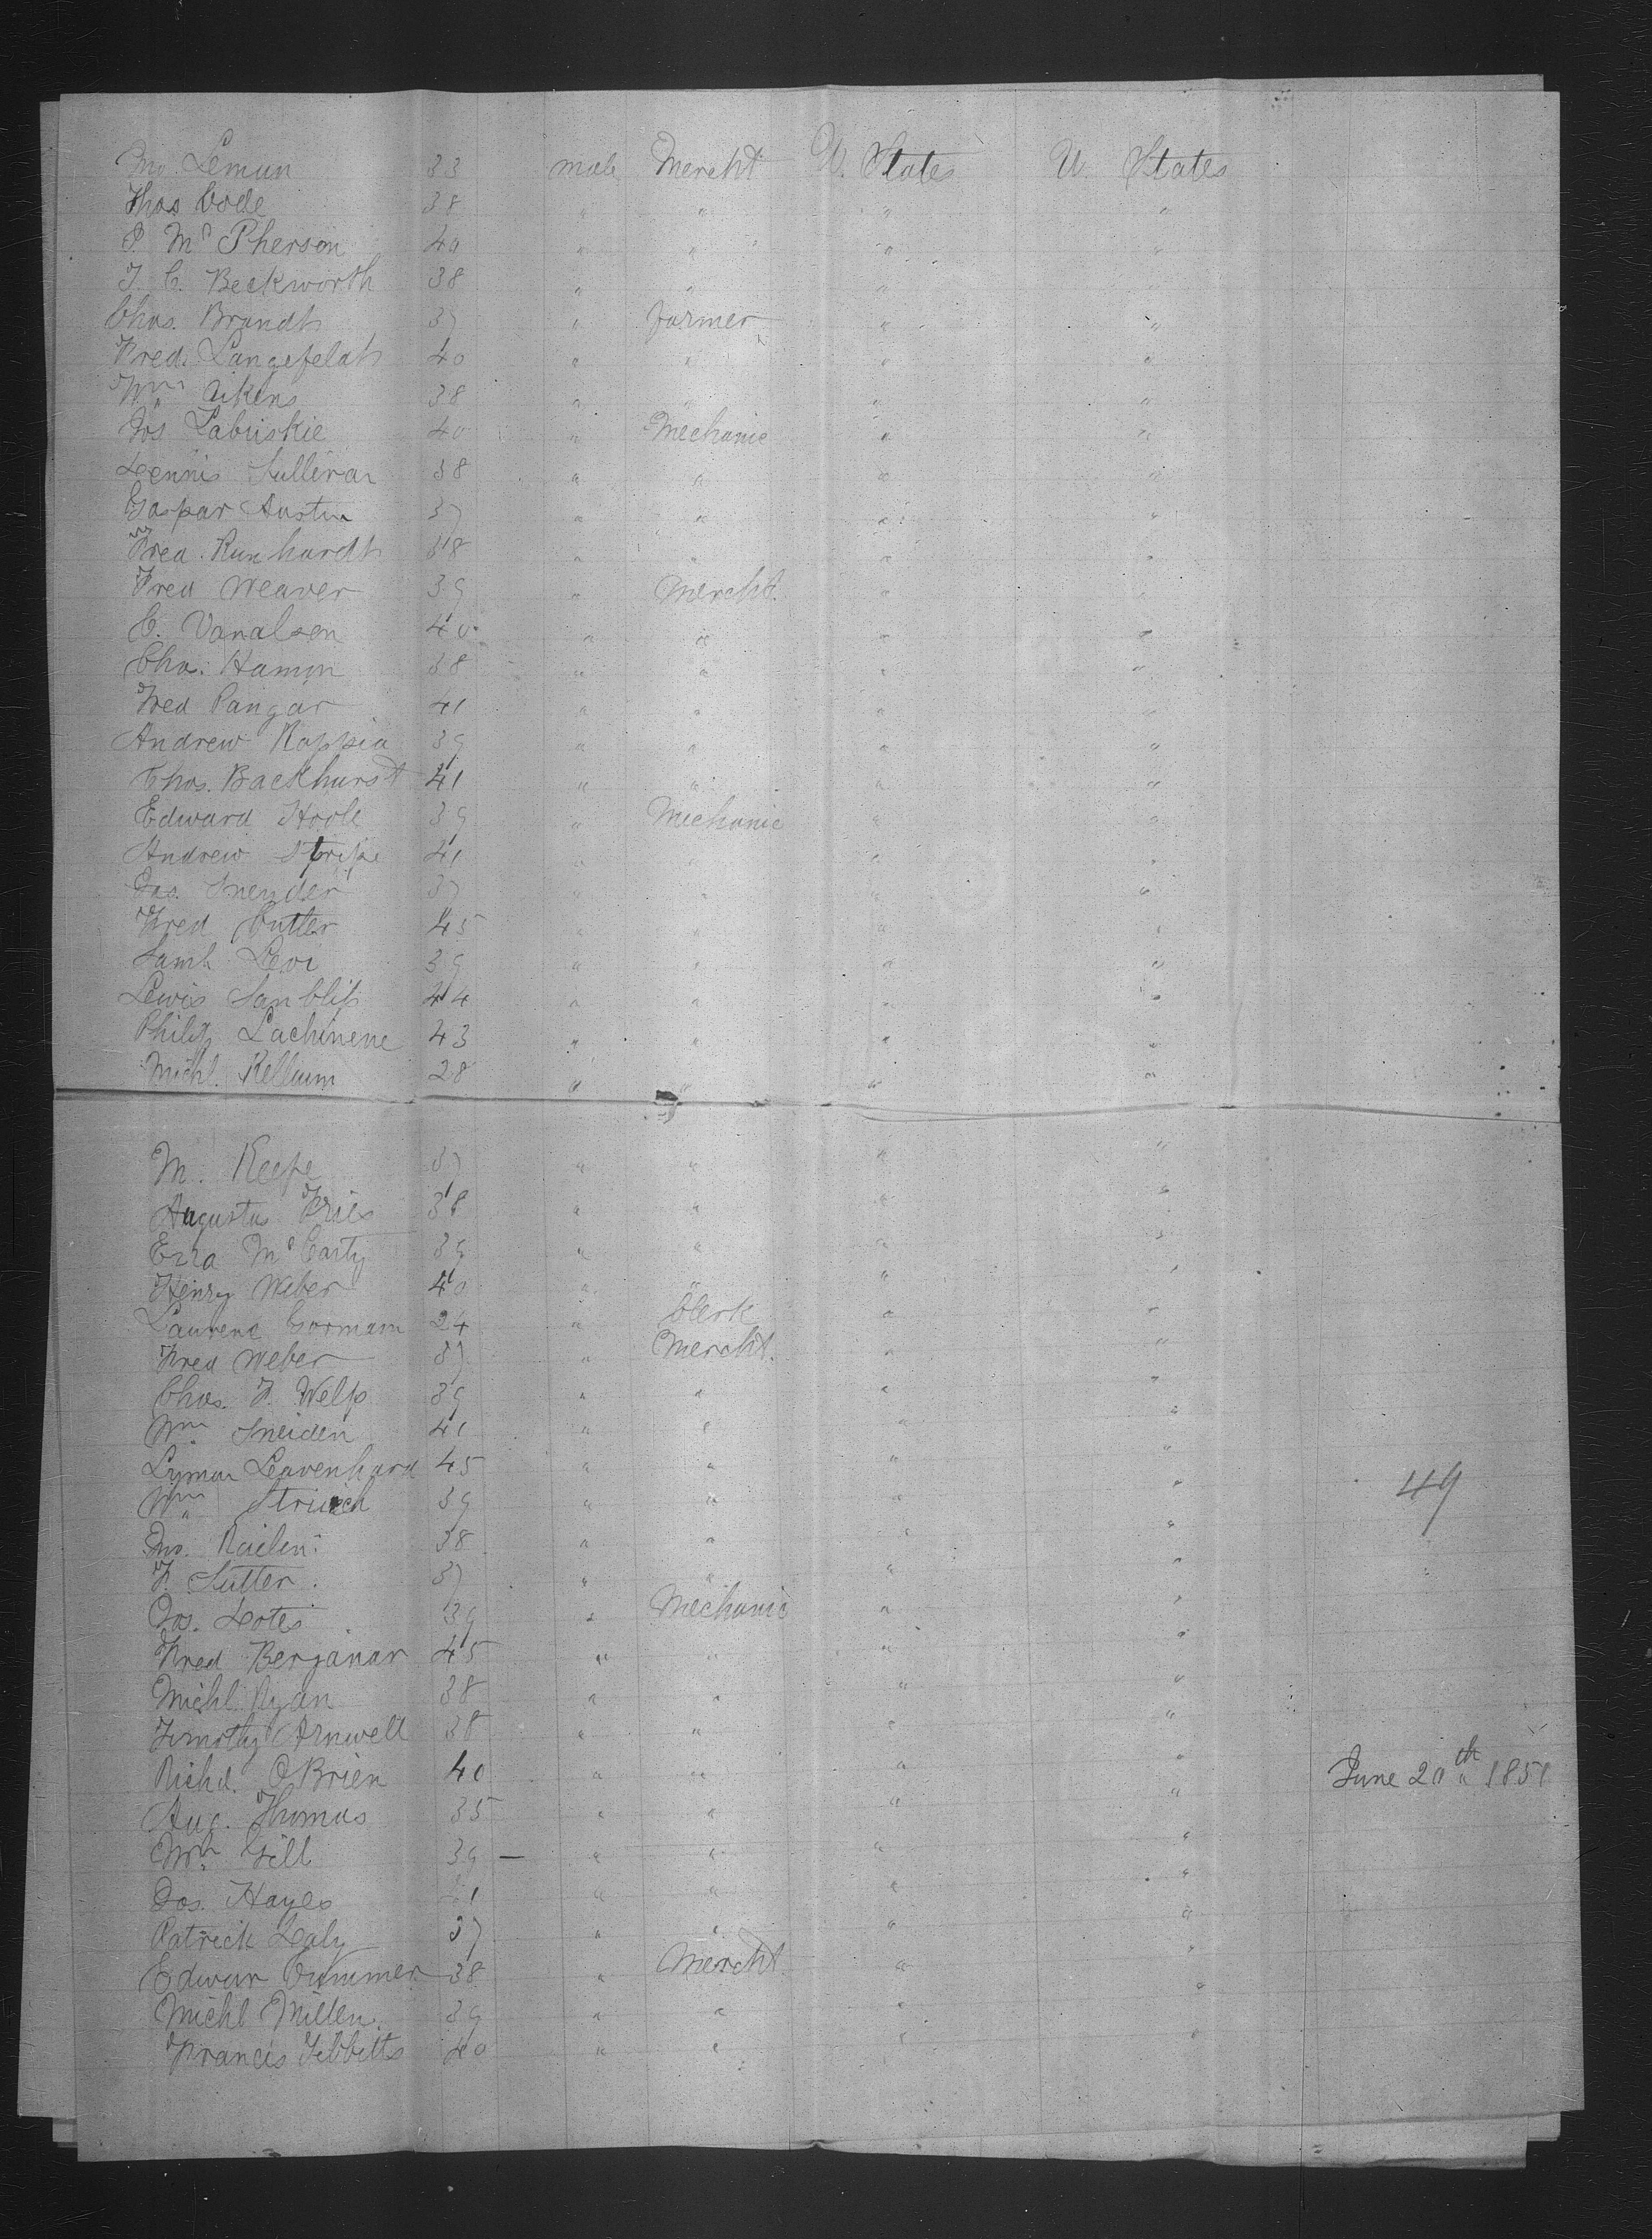 Jno. Leman 33 male Mercht U. States U. States
Thos Code 38 " " " "
P. McPherson 40 " " " "
J. C. Beckworth 38 " " " "
Chas. Brandt 37 " farmer " "
Fred. Langefelat 40 " " " "
Wm Aikens 38 " " " "
Jos Labriskie 40 " Mechanic " "
Dennis Sullivan 38 " " " "
Gaspar Austin 37 " " " "
Fred. Runhardt 38 " " " "
Fred Weaver 39 " Mercht. " "
C. Vanalsen 40 " " " "
Chas. Hamm 38 " " " "
Fred Pangar 41 " " " "
Andrew Rappia 39 " " " "
Chas. Backhurst 41 " " " "
Edward Hoole 39 " Mechanic " "
Andrew Stripe 41 " " " "
Jas. Sneyder 37 " " " "
Fred Cutter 45 " " " "
Saml. Levi 39 " " " "
Lewis 44 " " " "
Philip Lachinene 43 " " " "
Michl. Kellum 28 " " " "
M. Keefe 37 " " " "
Augustus Fries 38 " " " "
Ezra McCarty 39 " " " "
Henry Weber 40 " " " "
Laurenc Gormam 24 " Clerk " "
Fred Weber 37 " Mercht. " "
Chas. F. Wells 39 " " " "
Wm Sneiden 41 " " " "
Lyman Leavenhard 45 " " " "
49
Wm 39 " " " "
Jno. 38 " " " "
F. Sutter. 37 " " " "
Jos. Lotes 39 " Mechanic " "
Fred Berganar 45 " " " "
Michl Ryan 38 " " " "
Timothy Arnwell 38 " " " "
Richd. OBrien 40 " " " " June 20th 1851
Aug. Thomas 35 " " " "
Wm Gill 39 – " " " "
Jos. Hayes 41 " " " "
Patrick Daly 37 " " " "
Edwar Cummer 38 " Mercht " "
Michl Millen. 39 " " " "
Francis Tibbitts 40 " " " "